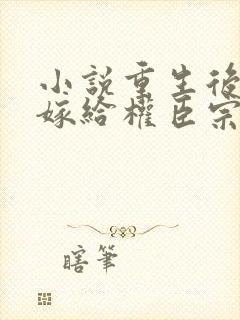 小說重生後
嫁給權臣宗
瞎筆